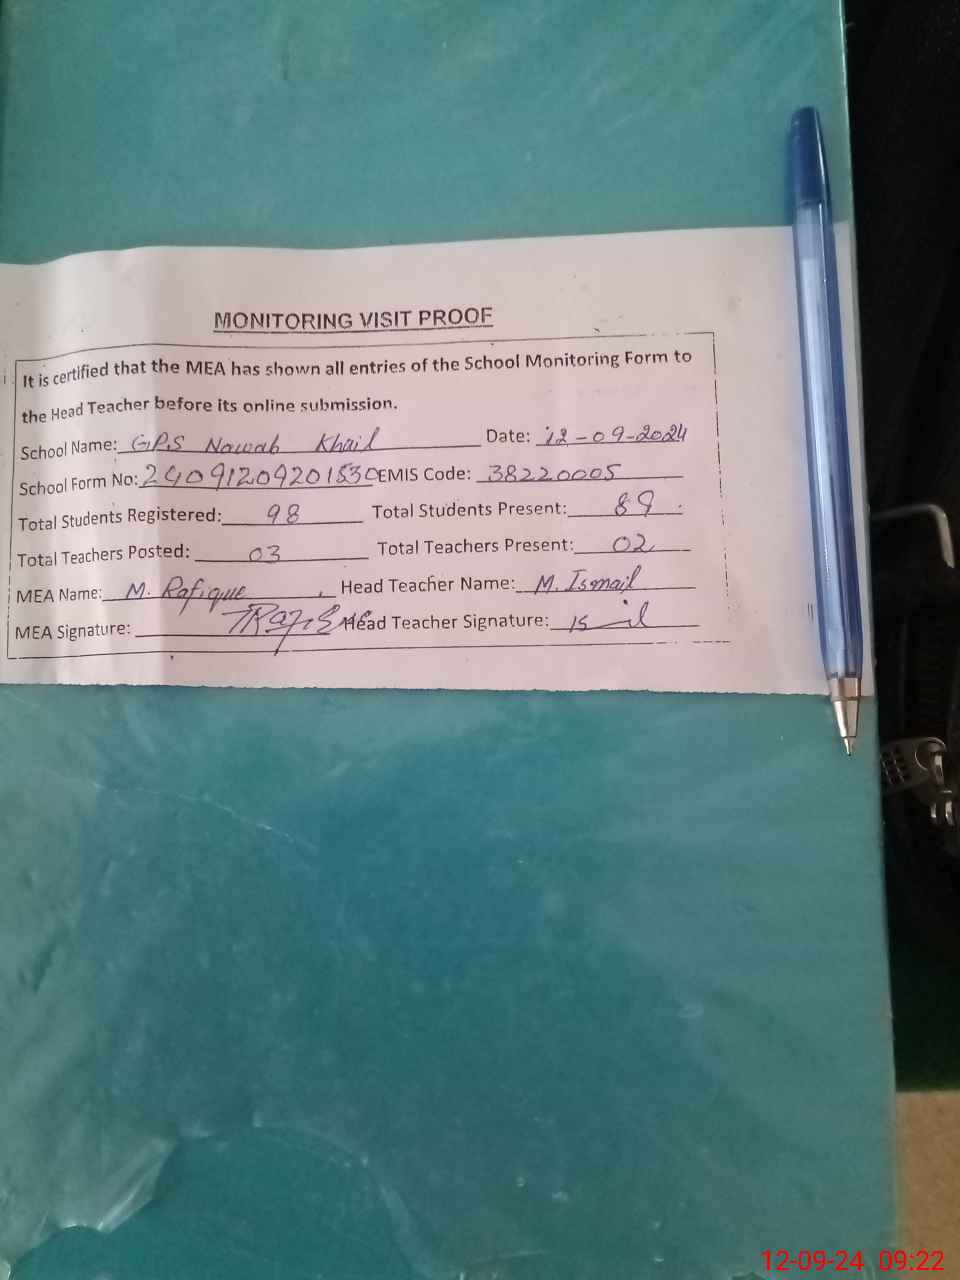 MONITORING VISIT PROOF
It is certified that the MEA has shown all entries of the School Monitoring Form to
the Head Teacher before its online submission.
School Name: GPS Nawab Khail Date: 12-09-2024
School Form No: EMIS Code: 38220005
Total Students Registered: 98 Total Students Present: 89
Total Teachers Posted: 03 Total Teachers Present: 02
MEA Name: M. Rafique Head Teacher Name: M. Ismail
MEA Signature: Head Teacher Signature:
12-09-24 09:22